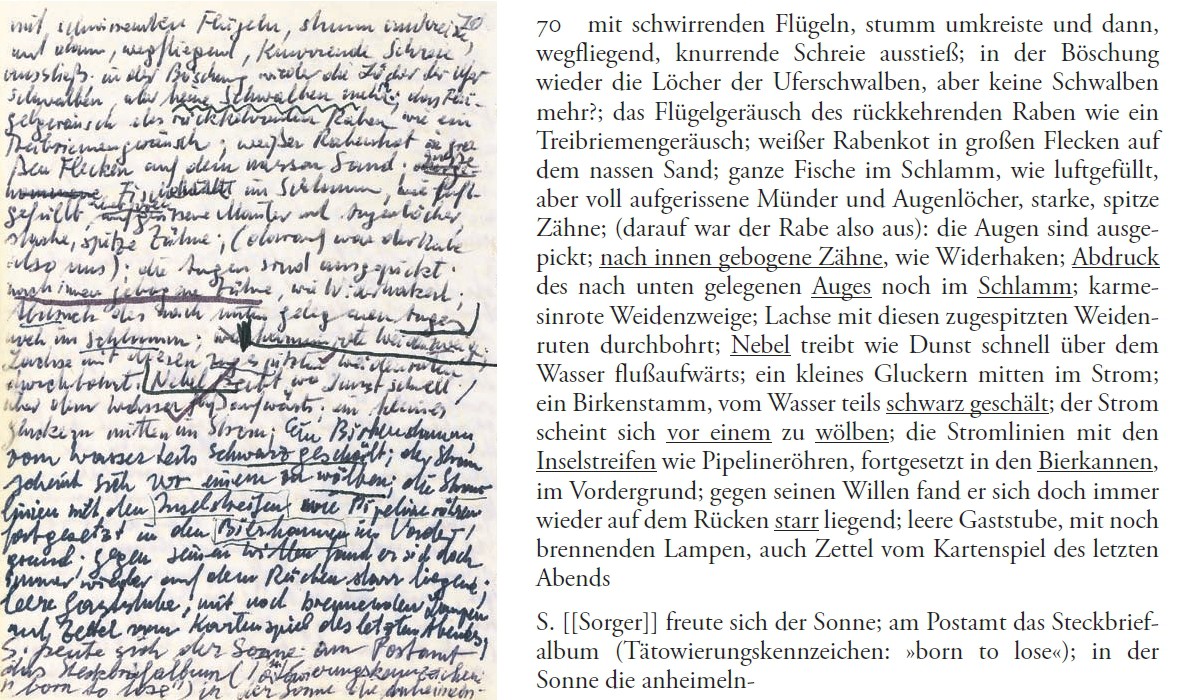 mit schwirrenden Flügeln, stumm umkreiste 70
und dann, wegfliegend, knurrende Schreie
ausstieß. in der Böschung wieder die Löcher der Ufer
schwalben, aber keine Schwalben mehr?; das Flü-
gelgeräusch des rückkehrenden Raben wie ein
Treibriemengeräusch; weißer Rabenkot in gro-
ßen Flecken auf dem nassen Sand. ganze
Fische im Schlamm, wie luft-
gefüllt, aufgerissene Münter und Augenlöcher,
starke, spitze Zähne; (darauf war der Rabe
also aus): die Augen sind ausgepickt.
nach innen gebogene Zähne, wie Widerhaken;
Abdruck des nach unten gelegenen Auges
noch im Schlamm; rote Weidenzweige
Lachse mit diesen zugespitzten Weidenruten
durchbohrt. Nebel treibt wie Dunst schnell
über dem Wasser flußaufwärts; ein kleines
Gluckern mitten im Strom; Ein Birkenstamm,
vom Wasser teils schwarz geschält; der Strom
scheint sich vor einem zu wölben; die Strom
linien mit den Inselstreifen wie Pipelineröhren
fortgesetzt in den Bierkannen im Vorder-
grund; gegen seinen Willen fand er sich doch
immer wieder auf dem Rücken starr liegend;
leere Gaststube, mit noch brennenden Lampen,
auch Zettel vom Kartenspiel des letzten Abends
S. freute sich der Sonne; am Postamt
das Steckbriefalbum (Tätowierungskennzeichen:
"born to lose") in der Sonne die anheimeln-
70 mit schwirrenden Flügeln, stumm umkreiste und dann,
wegfliegend, knurrende Schreie ausstieß; in der Böschung
wieder die Löcher der Uferschwalben, aber keine Schwalben
mehr?; das Flügelgeräusch des rückkehrenden Raben wie ein
Treibriemengeräusch; weißer Rabenkot in großen Flecken auf
dem nassen Sand; ganze Fische im Schlamm, wie luftgefüllt,
aber voll aufgerissene Münder und Augenlöcher, starke, spitze
Zähne; (darauf war der Rabe also aus): die Augen sind ausge-
pickt; nach innen gebogene Zähne, wie Widerhaken; Abdruck
des nach unten gelegenen Auges noch im Schlamm; karme-
sinrote Weidenzweige; Lachse mit diesen zugespitzten Weiden-
ruten durchbohrt; Nebel treibt wie Dunst schnell über dem
Wasser flußaufwärts; ein kleines Gluckern mitten im Strom;
ein Birkenstamm, vom Wasser teils schwarz geschält; der Strom
scheint sich vor einem zu wölben; die Stromlinien mit den
Inselstreifen wie Pipelineröhren, fortgesetzt in den Bierkannen,
im Vordergrund; gegen seinen Willen fand er sich doch immer
wieder auf dem Rücken starr liegend; leere Gaststube, mit noch
brennenden Lampen, auch Zettel vom Kartenspiel des letzten
Abends
S. [[Sorger]] freute sich der Sonne; am Postamt das Steckbrief-
album (Tätowierungskennzeichen: »born to lose«); in der
Sonne die anheimeln-